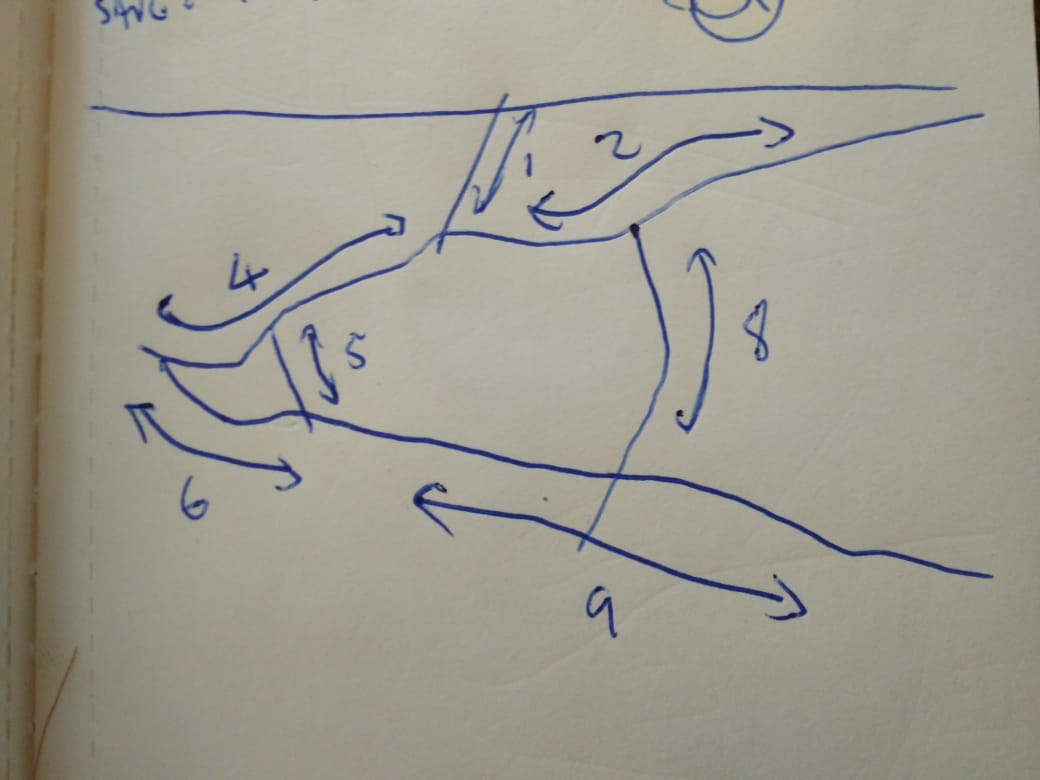 SAVG:
1
2
4
5
8
6
9